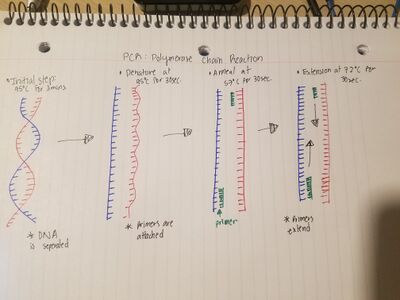 PCR: Polymerase Chain Reaction
• Initial step:
95°C for 3mins.
* DNA
is separated
• Denature at
95°C for 30sec.
* Primers are
attached
• Anneal at
57°C for 30sec.
primer
• Extension at 72°C for
30sec.
* Primers
extend